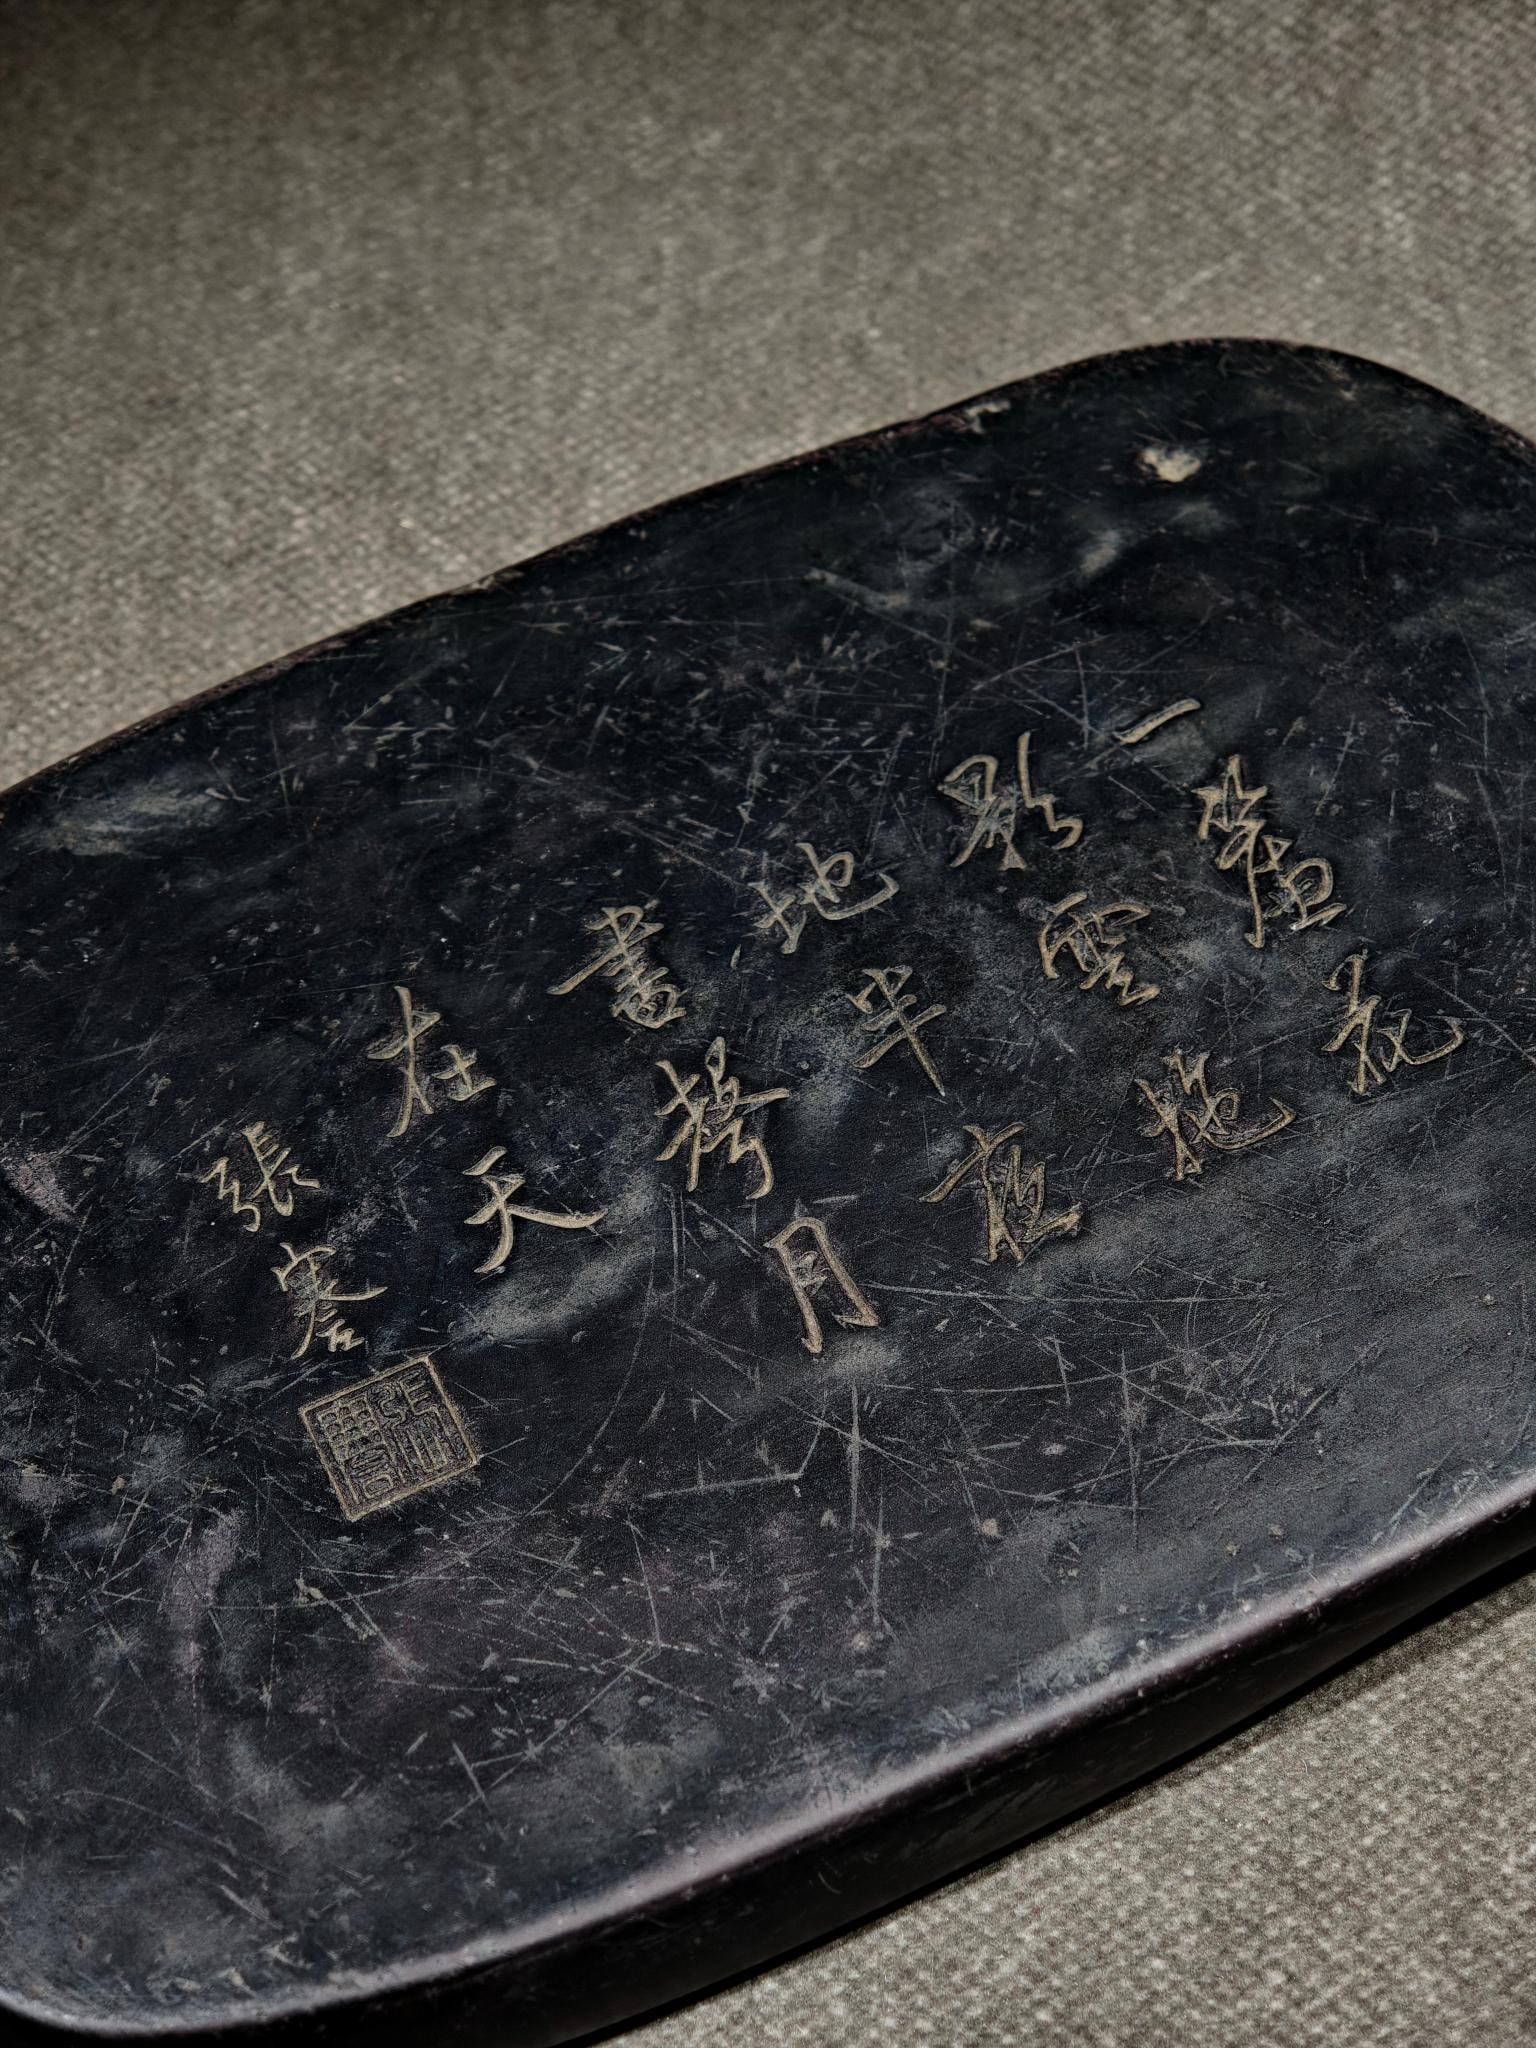 一簾花
影雲拖
地半夜
畫月
在天
張謇